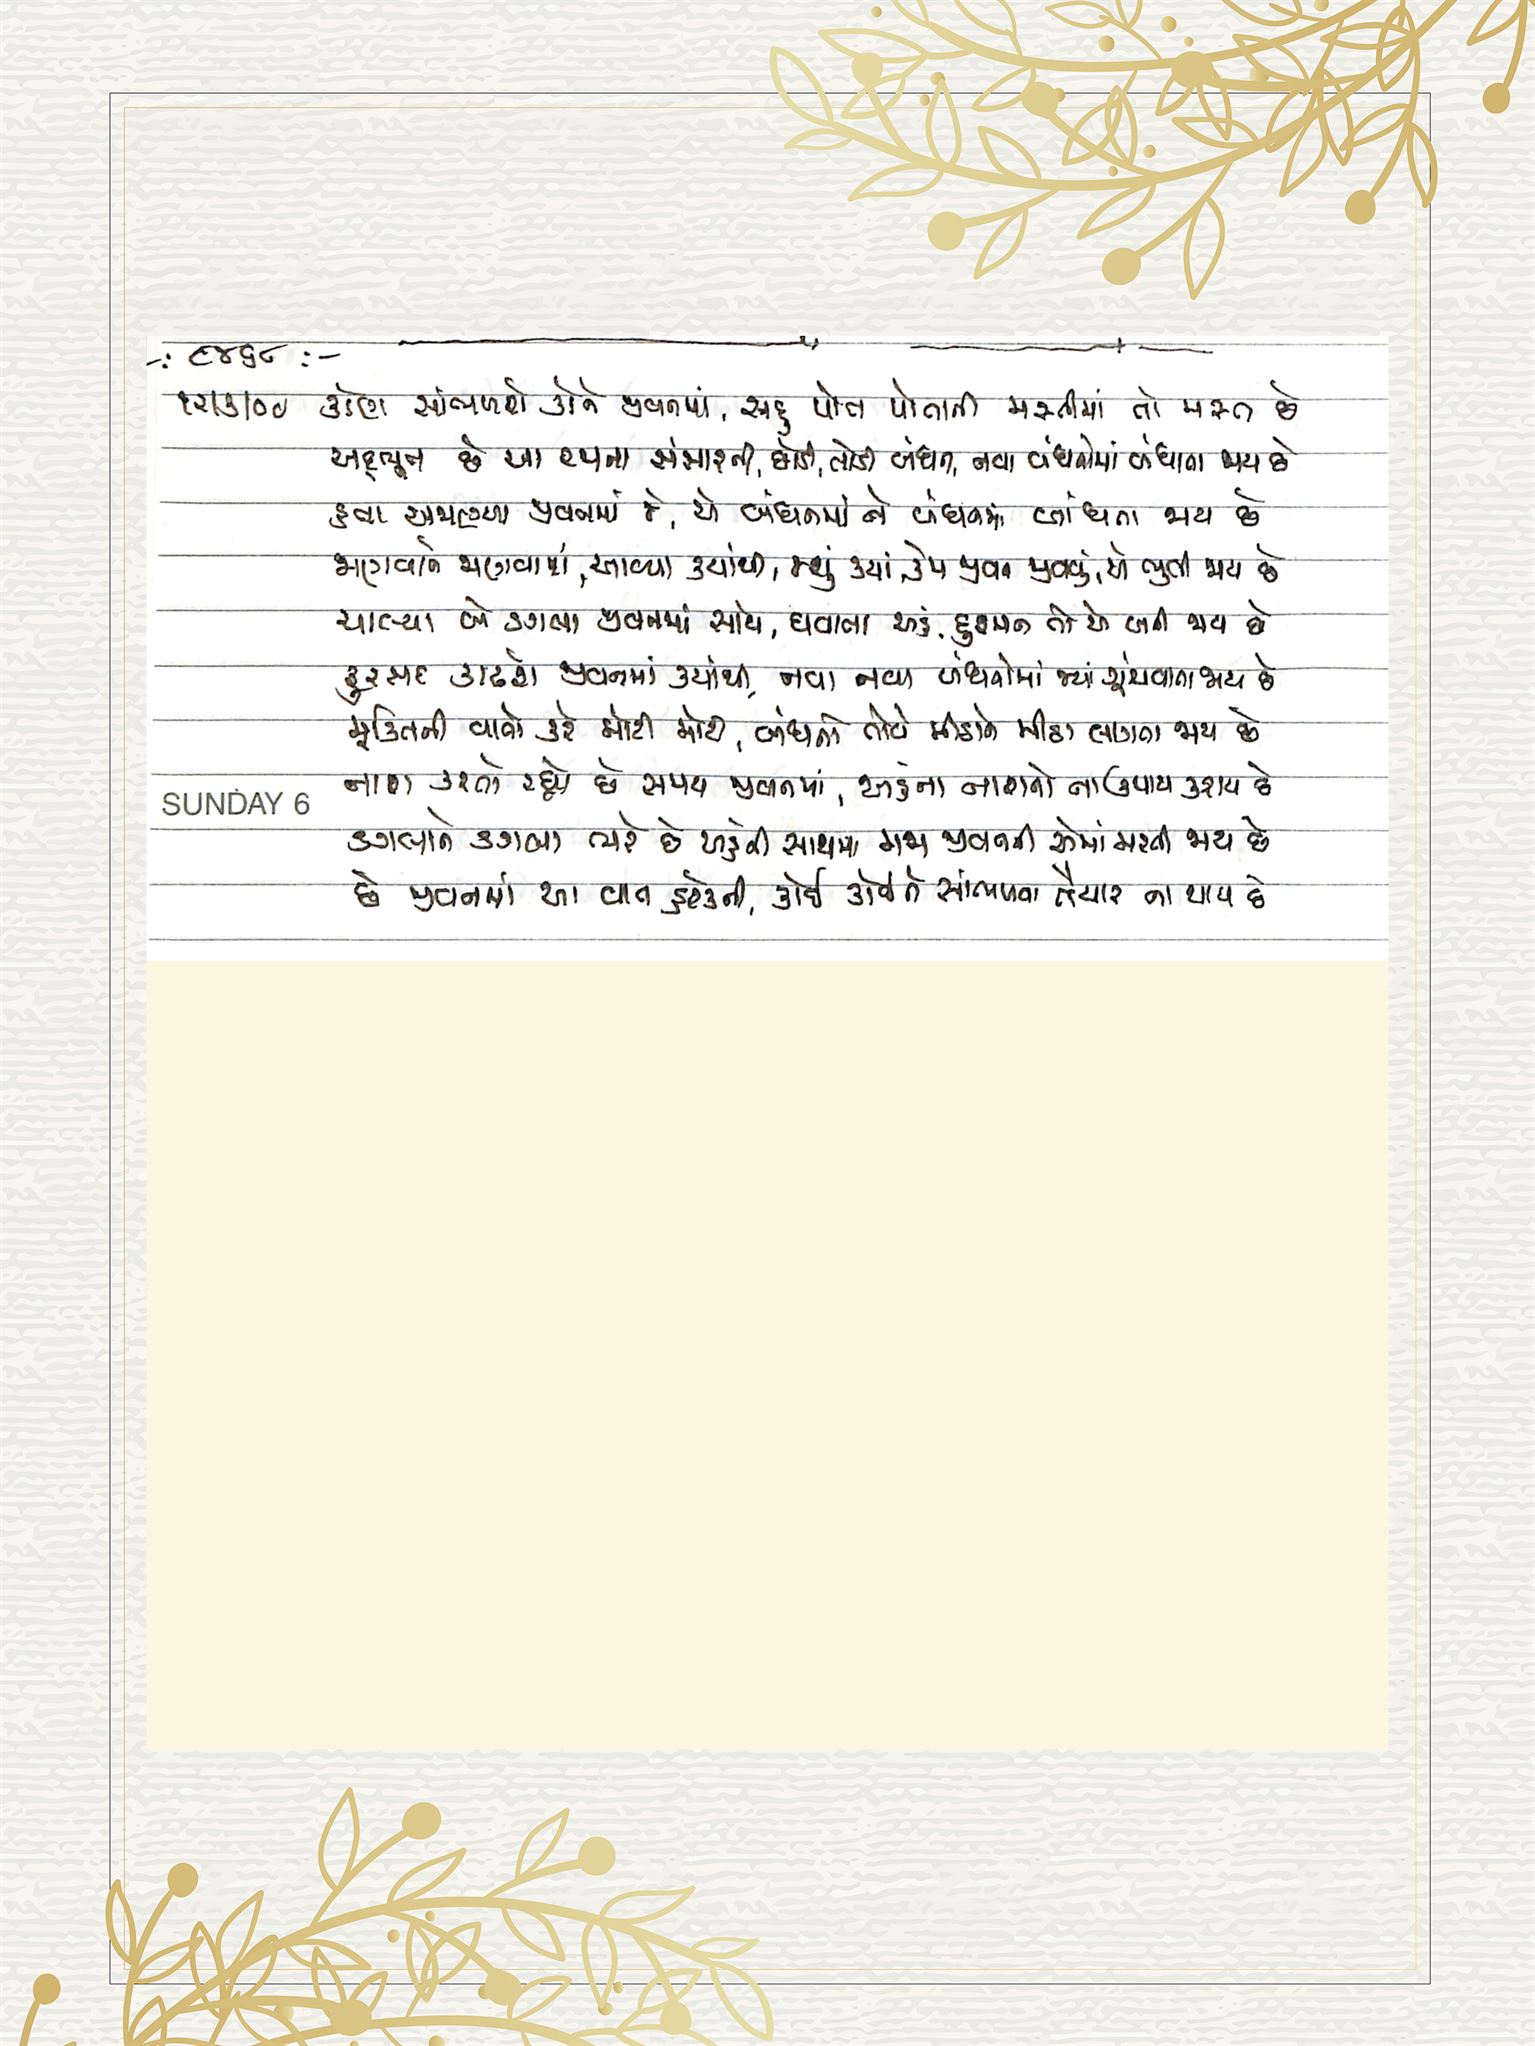 -: ૯૪૬૮ :-
કોણ સાંભળશે કોને જીવનમાં, સહુ પોત પોતાની મસ્તીમાં તો મસ્ત છે
અદ્ભૂત છે આ રચના સંસારની, છોડી, તોડી બંધન, નવા બંધનોમાં બંધાતા જાય છે
હવા અજાણ્યા જીવનમાં જે, એ બંધનમાં ને બંધનમાં બાંધતા જાય છે
જાણવાને જાણવામાં, આવ્યા ક્યાંથી, જવું ક્યાં, કેમ જીવન જીવવું, એ ભુલી જાય છે
ચાલ્યા બે ડગલા જીવનમાં સાથે, ઘવાતા અહં, દુશ્મન તો એ બની જાય છે
ફુરસદ કાઢશે જીવનમાં ક્યાંથી, નવા નવા બંધનોમાં જ્યાં ગૂંથવાતા જાય છે
મૂક્તિની વાતો કરે મોટી મોટી, બંધનો તોયે મીઠાને મીઠા લાગતા જાય છે
નાશ કરતો રહ્યો છે સમય જીવનમાં, અહંના નાશનો ના ઉપાય કરાય છે
SUNDAY 6
ડગલાને ડગલા ભરે છે અહંની સાથમાં મજા જીવનની એમાં મરતી જાય છે
છે જીવનમાં આ વાત હરેકની, કોઈ કોઈને સાંભળવા તૈયાર ના થાય છે